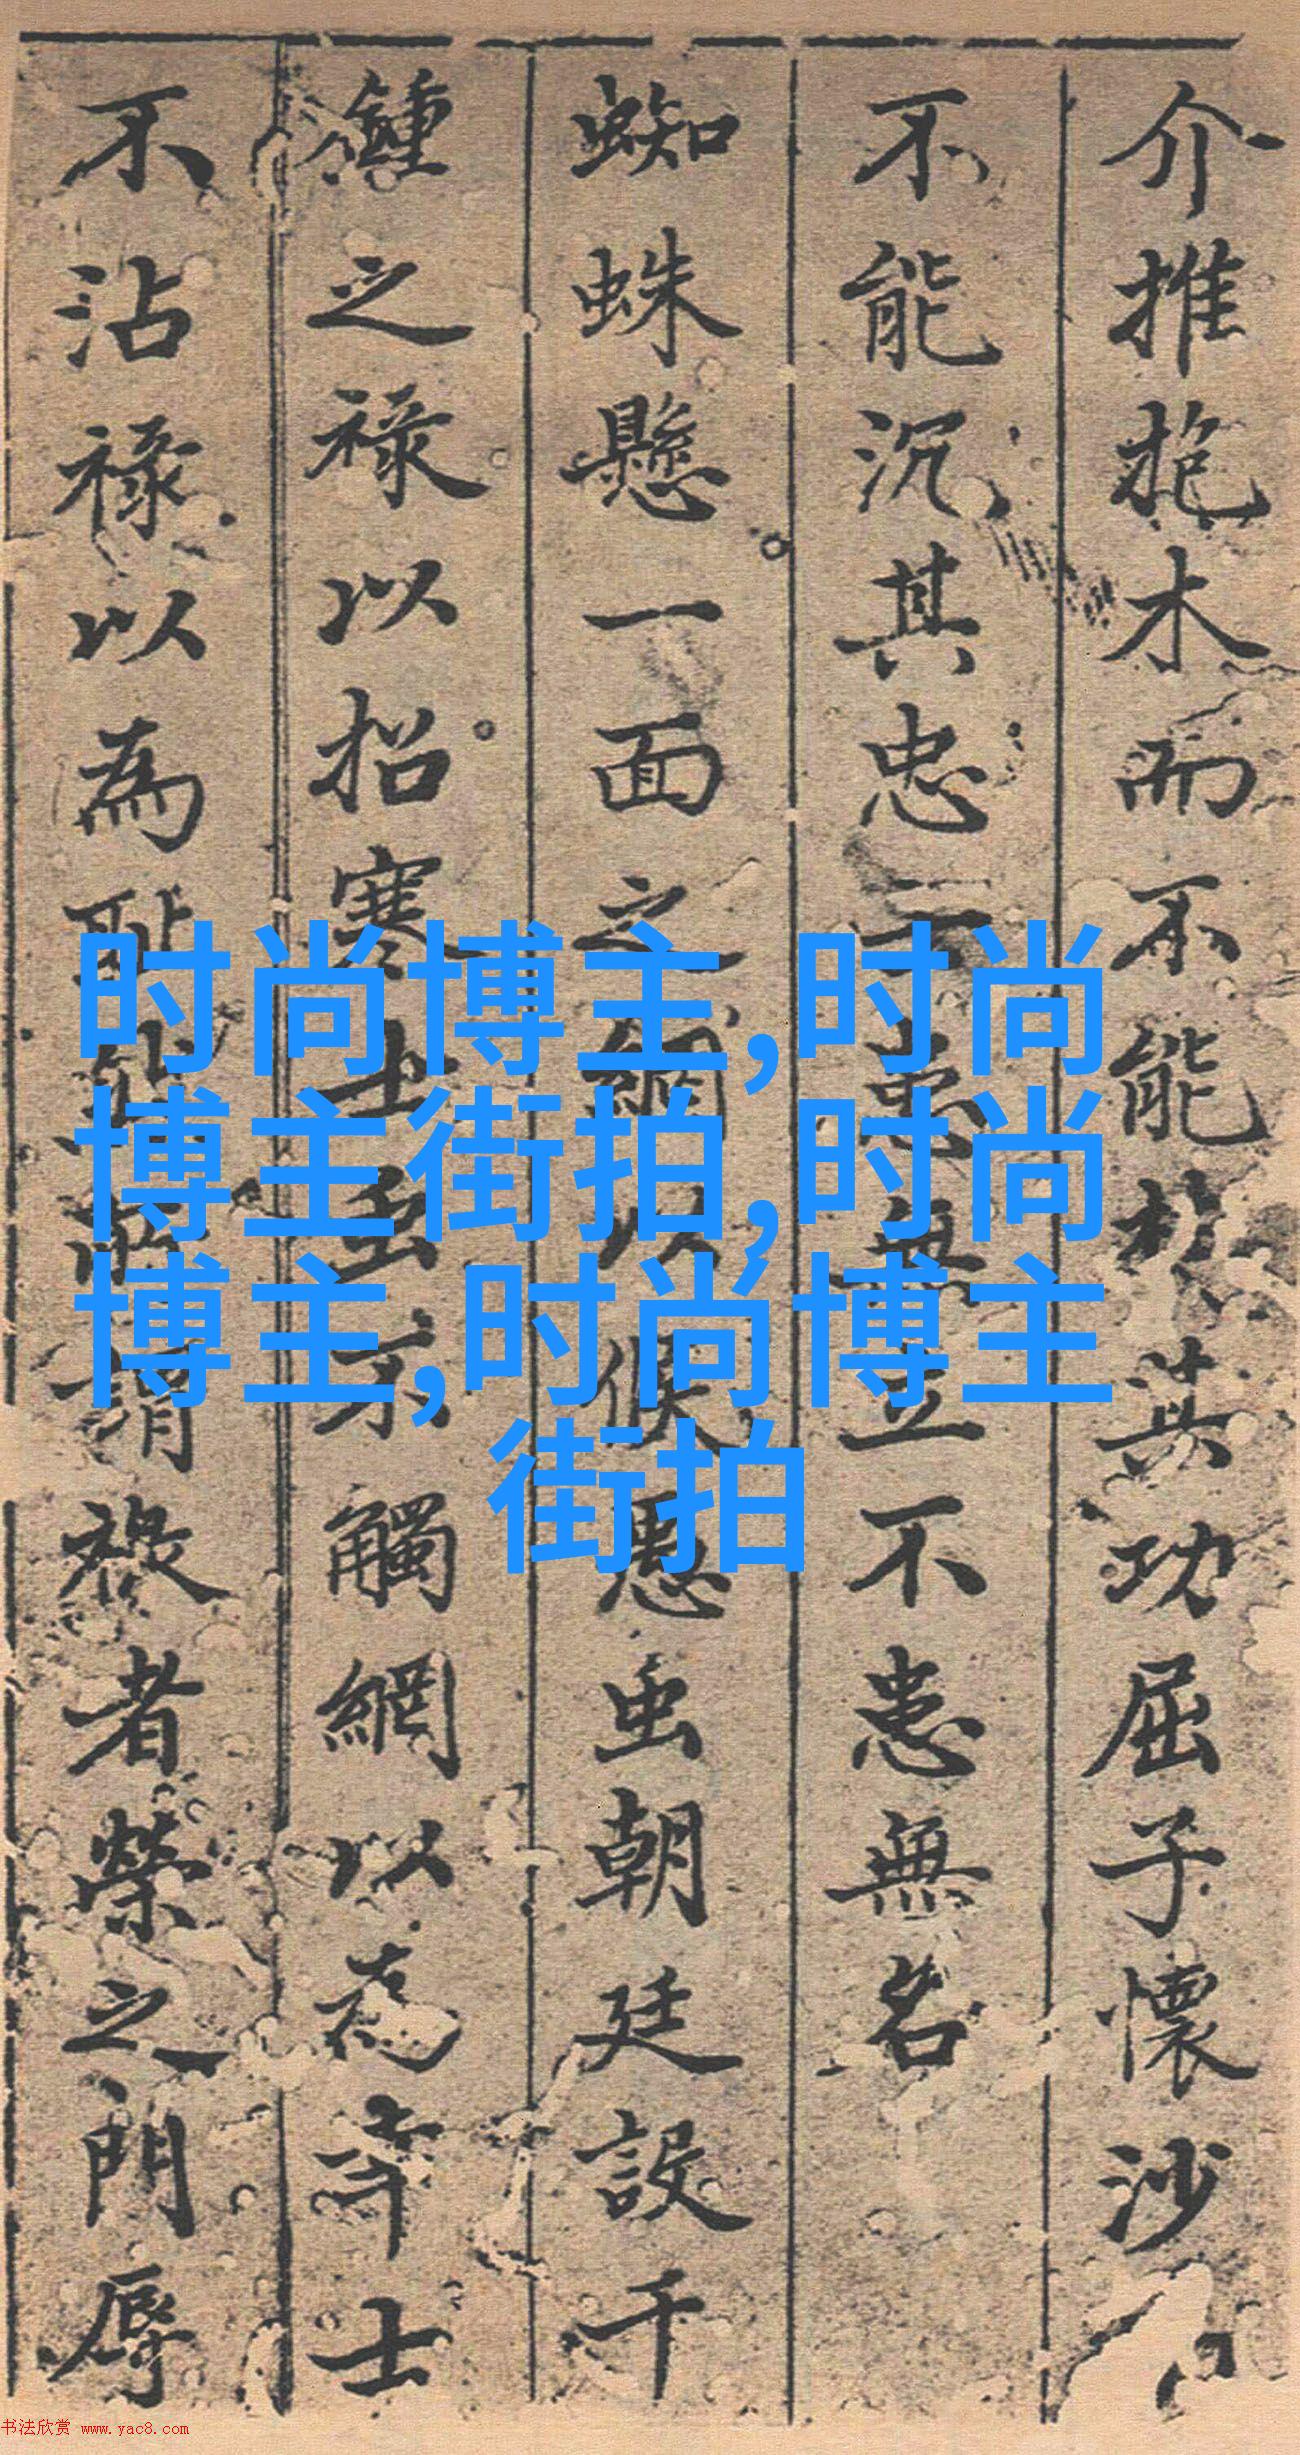 介推抱木而不能於其功屈子懷沙
不能沉其忠一患無立不患無名
蜘蛛懸一面之網以候愚虫朝廷設千
鍾之祿以招寒士虫不觸網以為
士
不沾祿以為恥謂祿者榮之門辱
时尚博主,时尚
博主街拍,时尚
博主,时尚博主
街拍
书法欣赏 www.yac8.com